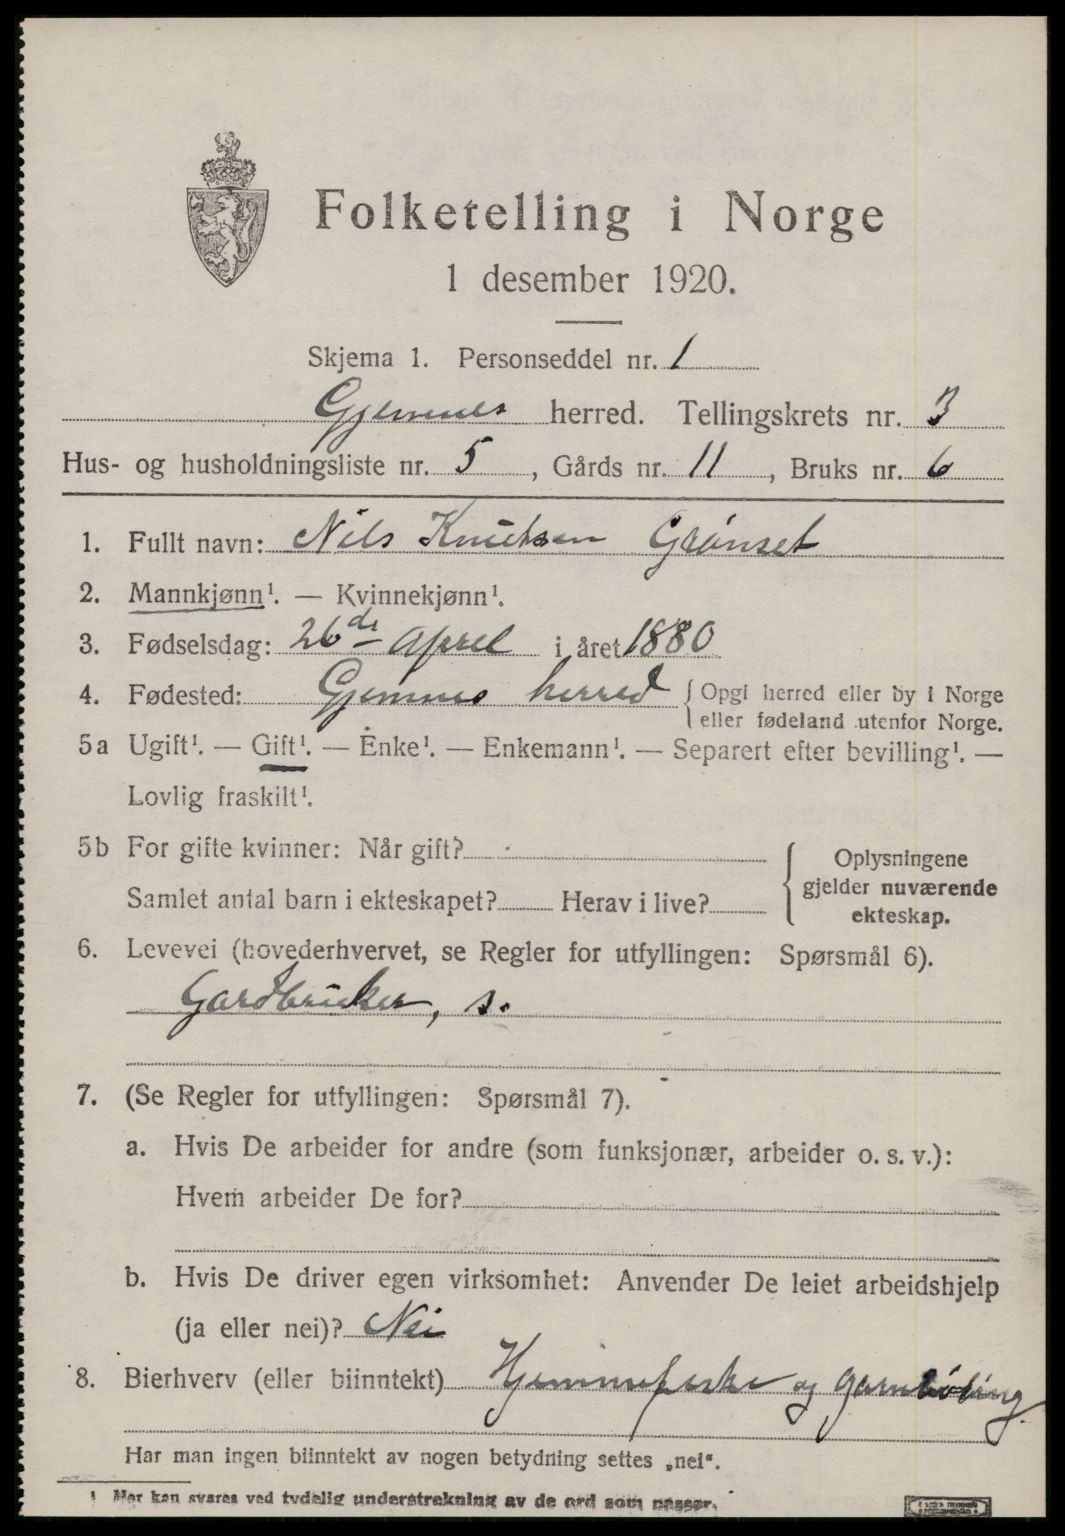 Folketelling i Norge
1 desember 1920.
Skjema 1. Personseddel nr. 1
Gjemnes herred. Tellingskrets nr. 3
Hus- og husholdningsliste nr. 5, Gårds nr. 11, Bruks nr. 6
1. Fullt navn: Nils Knutsen Grønset
2. Mannkjønn¹. — Kvinnekjønn¹.
3. Fødselsdag: 26de April i året 1880
4. Fødested: Gjemnes herred { Opgi herred eller by i Norge
eller fødeland utenfor Norge.
5a Ugift¹. — Gift¹. — Enke¹. — Enkemann¹. — Separert efter bevilling¹. —
Lovlig fraskilt¹.
5b For gifte kvinner: Når gift?
Samlet antal barn i ekteskapet? Herav i live?
Oplysningene
gjelder nuværende
ekteskap.
6. Levevei (hovederhvervet, se Regler for utfyllingen: Spørsmål 6).
Gardbruker, s.
7. (Se Regler for utfyllingen: Spørsmål 7).
a. Hvis De arbeider for andre (som funksjonær, arbeider o. s. v.):
Hvem arbeider De for?
b. Hvis De driver egen virksomhet: Anvender De leiet arbeidshjelp
(ja eller nei)? Nei
8. Bierhverv (eller biinntekt) Hjemmefiske og
Har man ingen biinntekt av nogen betydning settes „nei“.
¹ Her kan svares ved tydelig understrekning av de ord som passer.